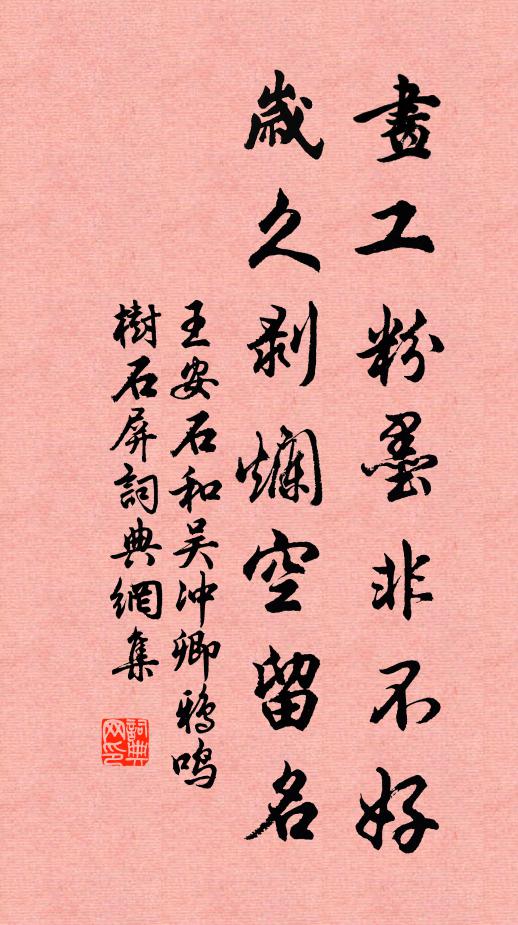 畫工粉墨非不好
歲久剝爛空留名
王安石和吴冲卿鴉鳴
樹石屏詞典網集
詞典網印